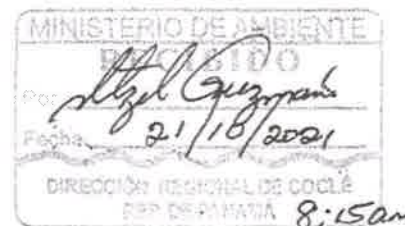 MINISTERIO DE AMBIENTE
RECIBIDO
Por: Itzel Guzmán
Fecha: 21/10/2021
DIRECCIÓN REGIONAL DE COCLÉ
REP. DE PANAMÁ 8:15am